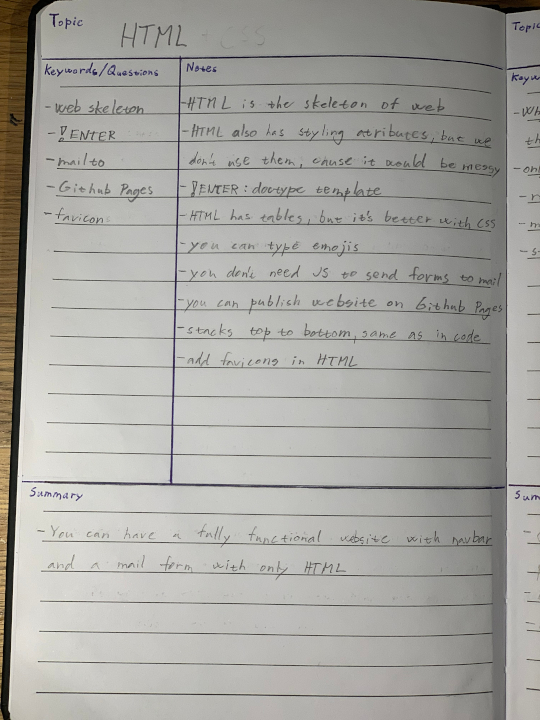 Topic
HTML + CSS
Keywords/Questions
Notes
- web skeleton
- !ENTER
- mailto
- Github Pages
- favicon
- HTML is the skeleton of web
- HTML also has styling atributes, but we
don't use them, cause it would be messy
- !ENTER: doctype template
- HTML has tables, but it's better with CSS
- you can type emojis
- you don't need JS to send forms to mail
- you can publish website on Github Pages
- stacks top to bottom, same as in code
- add favicons in HTML
Summary
- You can have a fully functional website with navbar
and a mail form with only HTML
Topic
Keyw
- Wh
th
- on
- r
- m
- s
Sum